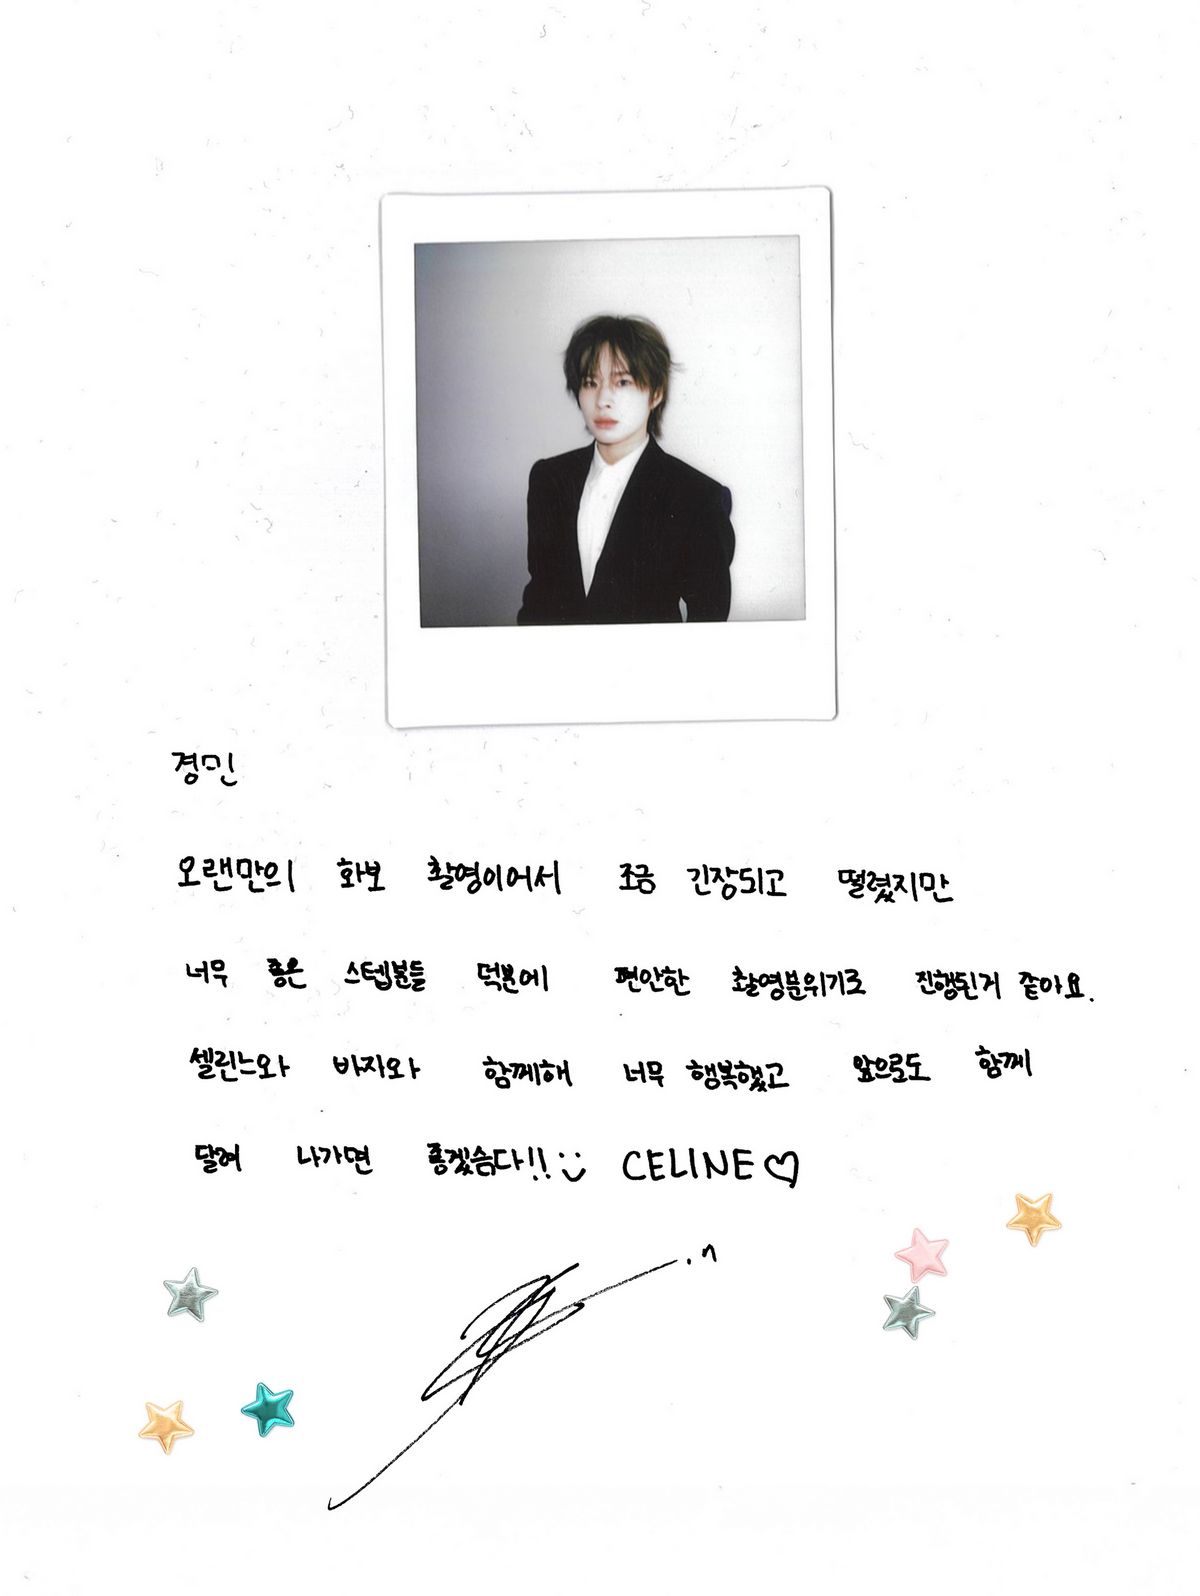 경민
오랜만의 화보 촬영이어서 조금 긴장되고 떨렸지만
너무 좋은 스텝분들 덕분에 편안한 촬영분위기로 진행된거 같아요.
셀린느와 바자와 함께해 너무 행복했고 앞으로도 함께
달려 나가면 좋겠습다!! CELINE♡